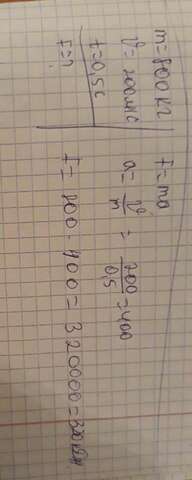 m=800кг
v=200м/с
t=0,5с
F=?
F=ma
a= v/m = 200/0,5 =400
F= 800·400= 320000=320кН